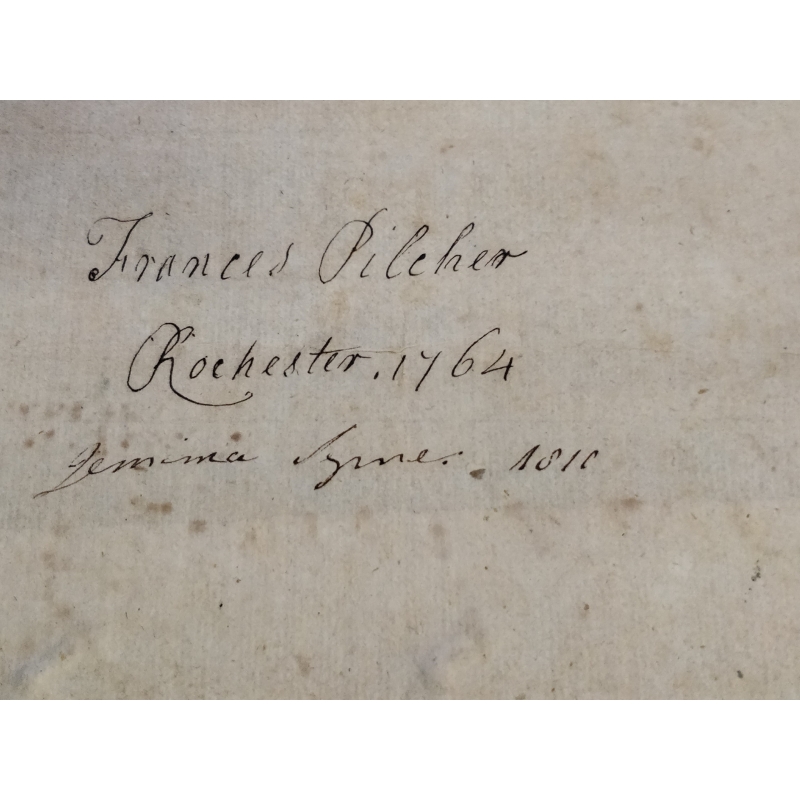 Frances Pilcher
Rochester. 1764
Jemima Syme.